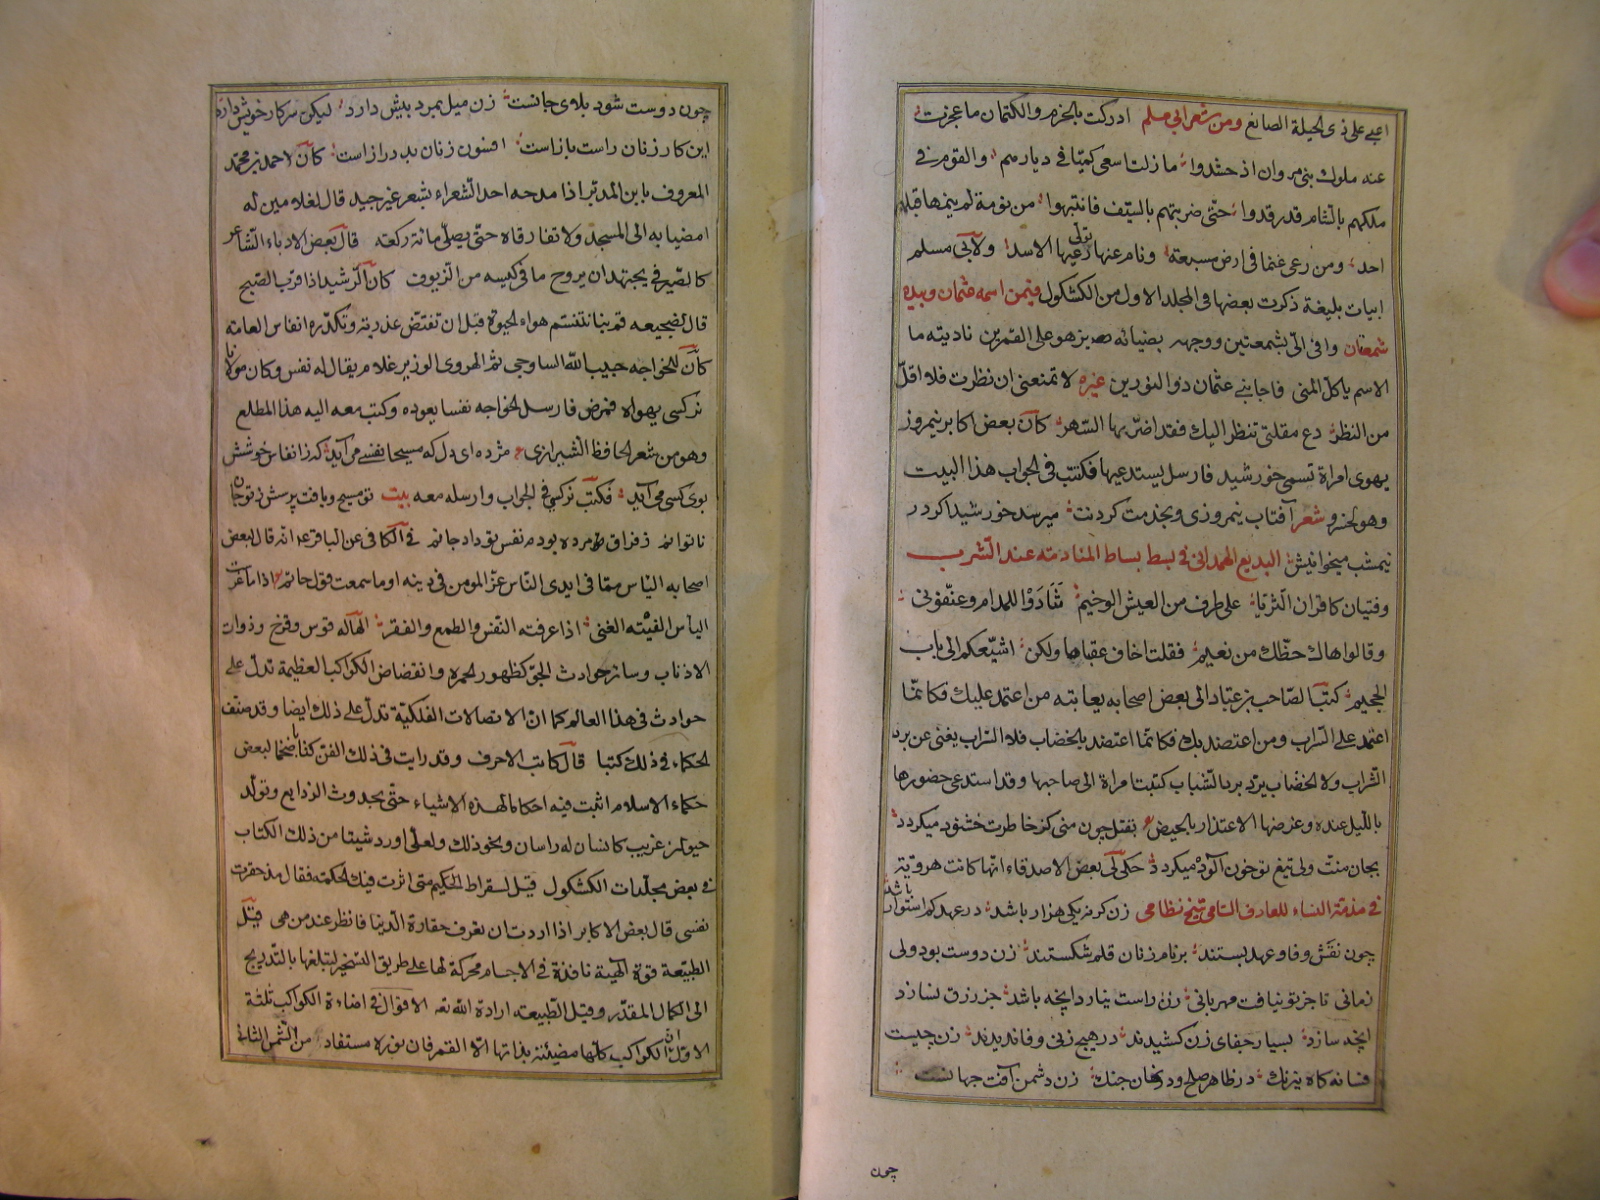 اعیی علی ذی الحیلة الصانع ومن شعر ابی مسلم ادرکت بالحزم والکتمان ما عجزت
عنه ملوک بنی مروان اذ حشدوا ما زلت اسعی کمیّا فی دیارهم والقوم فی
ملکهم بالشام قد رقدوا حتّی ضربتهم بالسّیف فانتبهوا من نومة لم ینمها قبلهم
احد ومن رعی غنما فی ارض مسبعة ونام عنها تولی رعیها الاسد ولابی مسلم
ابیات بلیغة ذکرت بعضها فی المجلد الاول من الکشکول فیمن اسمه عثمان وبیده
شمعتان وافی الیّ بشمعتین ووجهه بضیائه یزهو علی القمرین نادیته ما
الاسم یا کلّ المنی فاجابنی عثمان ذو النورین غیره لا تمنعنی ان نظرت فلا اقلّ
من النظر دع مقلتی تنظر الیک فقد اضرّ بها السّهر کان بعض اکابر نیمروز
یهوی امراة تسمی خورشید فارسل یستدعیها فکتب فی الجواب هذا البیت
وهو شعر آفتاب نیمروزی و بخدمت کردنت میرسد خورشید اکر در
نیمشب میخوانیش البدیع الهمدانی فی بسط بساط المنادمة عند الشرب
وفتیان کاقران الثریا علی طرف من العیش الوخیم تنادوا للمدام وعنّفونی
وقالوا هاک حظّک من نعیم فقلت اخاف عقباها ولکن اشیّعکم الی باب
الجحیم کتب الصّاحب بن عباد الی بعض اصحابه یعاتبه من اعتمد علیک فکانّما
اعتمد علی السّراب ومن اعتضد بک فکانّما اعتضد بالخضاب فلا السّراب یغنی عن برد
الشراب ولا الخضاب یردّ برد الشباب کتبت امراة الی صاحبها وقد استدعی حضورها
باللیل عنده وغرضها الاعتذار بالحیض بقتل چون منی کر خاطرت خشنود میکردد
بجان منت ولی تیغ تو خون آلود میکردد حکی لی بعض الاصدقاء انّها کانت هرویّة
فی مذمّة النساء للعارف السّامی شیخ نظامی زن کر نه یکی هزار باشد در عهد کم استوار باشد
چون نقش وفا و عهد بستند بر نام زنان قلم شکستند زن دوست بود ولی
زمانی تا جز تو نیافت مهربانی زن راست نیارد آنچه بازد جز رزق نسازد
آنچه سازد بسیار جفای زن کشیدند در هیچ زنی وفا ندیدند زن چیست
فسانه کاه نیرنک در ظاهر صلح و در نهان جنک زن دشمن آفت جهانست
چون
چون دوست شود بلای جانست زن میل بمرد بیش دارد لیکن سر کار خویش دارد
این کار زنان راست بازاست افسون زنان بد درازاست کان احمد بن محمد
المعروف بابن المدبّر اذا مدحه احد الشعراء بشعر غیر جید قال لغلامین له
امضیا به الی المسجد ولا تفارقاه حتّی یصلّی مائة رکعة قال بعض الادباء الشاعر
کالصّیرفی یجتهد ان یروج ما فی کیسه من الزیوف کان الرشید اذا قرب الصّبح
قال لضجیعه قم بنا نتنسّم هواء الحیوة قبل ان تفتضّ عذرته وتکدّره انفاس العامة
کان للخواجه حبیب الله الساوجی ثم الهروی الوزیر غلام یقال له نفس وکان مولانا
نرکسی یهواه فمرض فارسل الخواجه نفسا یعوده وکتب معه الیه هذا المطلع
وهو من شعر الحافظ الشیرازی مژده ای دل که مسیحا نفسی می آید که ز انفاس خوشش
بوی کسی می آید فکتب نرکسی فی الجواب وارسله معه بیت تو مسیح و یافت پرسش ز تو جان
ناتوانم ز فراق مرده بودم نفس تو داد جانم فی الکافی عن الباقر ع انه قال لبعض
اصحابه الیاس ممّا فی ایدی النّاس عزّ المومن فی دینه او ما سمعت قول حاتم اذا ما عرفت
الیأس الفیته الغنی اذا عرفته النّفس والطمع والفقر الهاله قوس وقزح وذوات
الاذناب وسائر حوادث الجوّ کظهور الحمره وانقضاض الکواکب العظیمة تدلّ علی
حوادث فی هذا العالم کما انّ الاتصالات الفلکیّة تدلّ علی ذلک ایضا وقد صنف
الحکماء فی ذلک کتبا قال کاتب الاحرف وقد رایت فی ذلک الفن کتابا ضخما لبعض
حکماء الاسلام اثبت فیه احکاما لهذه الاشیاء حتّی بحدوث الزوابع وتولّد
حیوان غریب کانسان له راسان ونحو ذلک ولعلّی اورد شیئا من ذلک الکتاب
فی بعض مجلّدات الکشکول قیل لسقراط الحکیم متی اثرت فیک الحکمة فقال مذ حقرت
نفسی قال بعض الاکابر اذا اردت ان تعرف حقارة الدنیا فانظر عند من هی قیل
الطبیعة قوة الهیة نافذة فی الاجسام محرکة لها علی طریق التسخیر لتبلغها بالتدریج
الی الکمال المقدّر وقیل الطّبیعة ارادة الله تعه الاقوال فی اضاءة الکواکب ثلثة
الاول ان الکواکب کلّها مضیئة بذاتها الّا القمر فان نوره مستفاد من الشمس الثانی